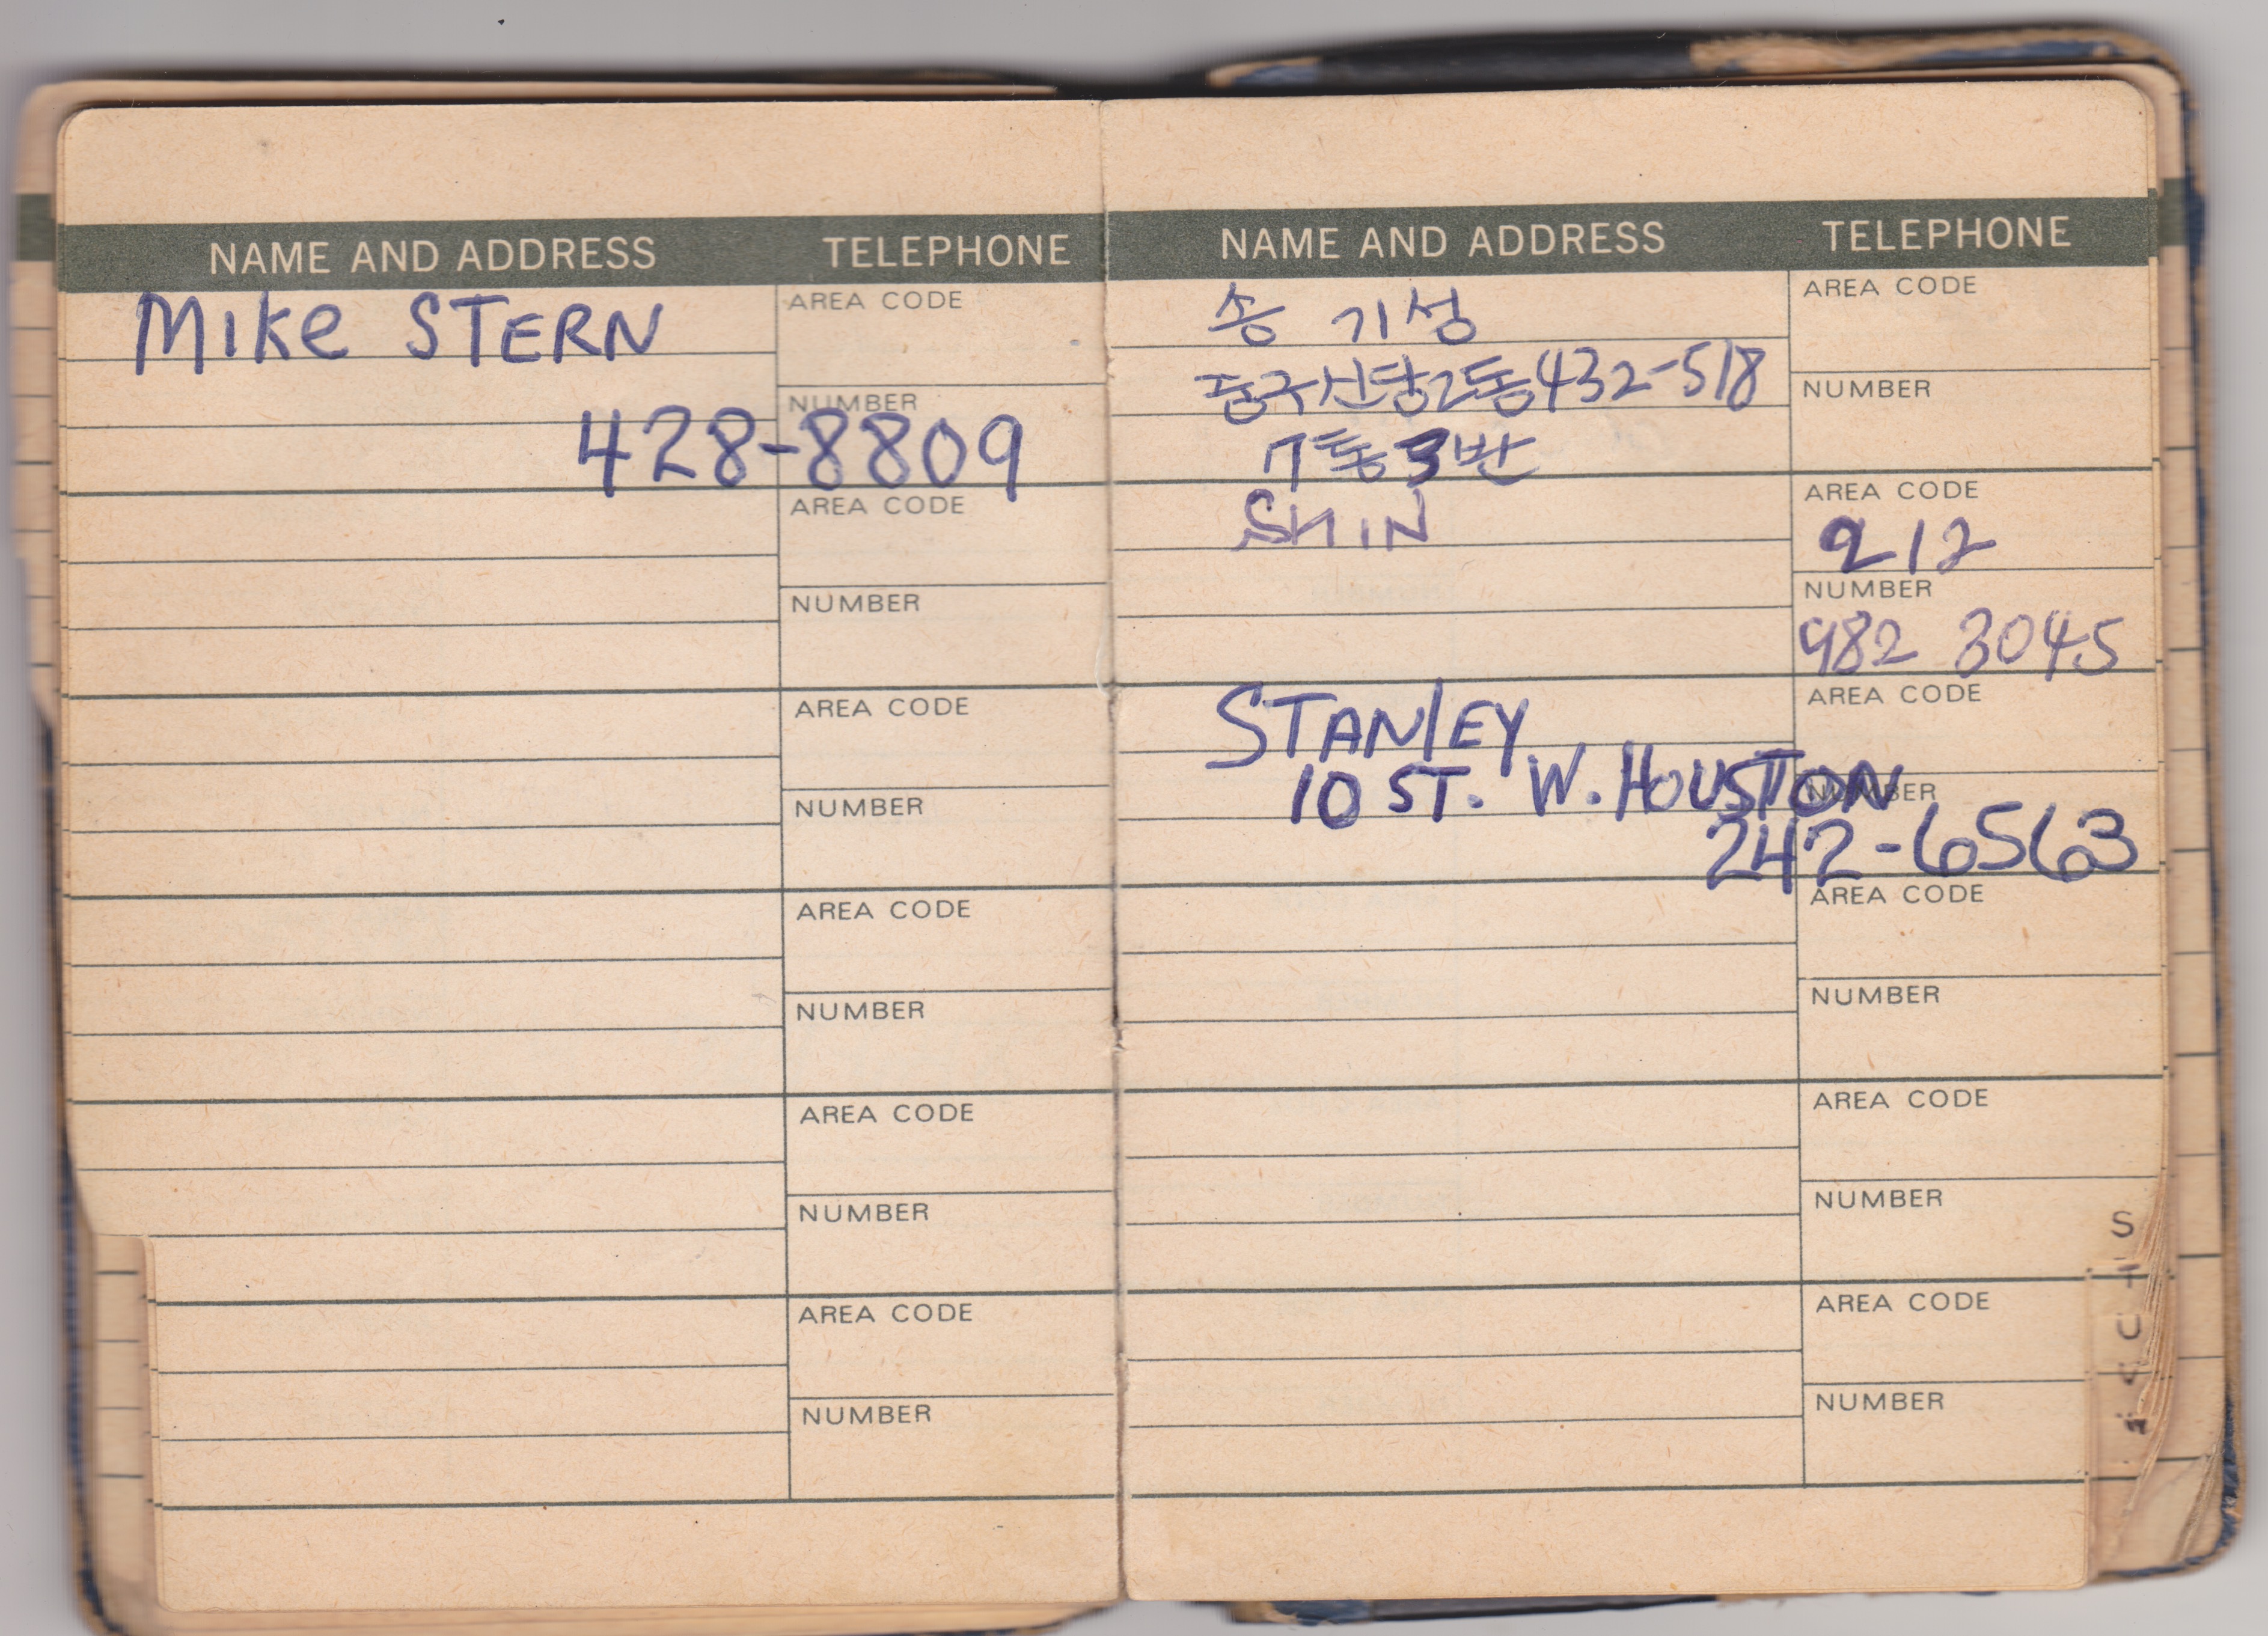 NAME AND ADDRESS TELEPHONE
Mike STERN
AREA CODE
NUMBER
428-8809
AREA CODE
NUMBER
AREA CODE
NUMBER
AREA CODE
NUMBER
AREA CODE
NUMBER
AREA CODE
NUMBER
NAME AND ADDRESS TELEPHONE
송 기성
AREA CODE
중구신당2동432-518
NUMBER
7통3반
SHIN
AREA CODE
212
NUMBER
982 3045
STANlEY
AREA CODE
10 ST. W. HOUSTON
NUMBER
242-6563
AREA CODE
NUMBER
AREA CODE
NUMBER
AREA CODE
NUMBER